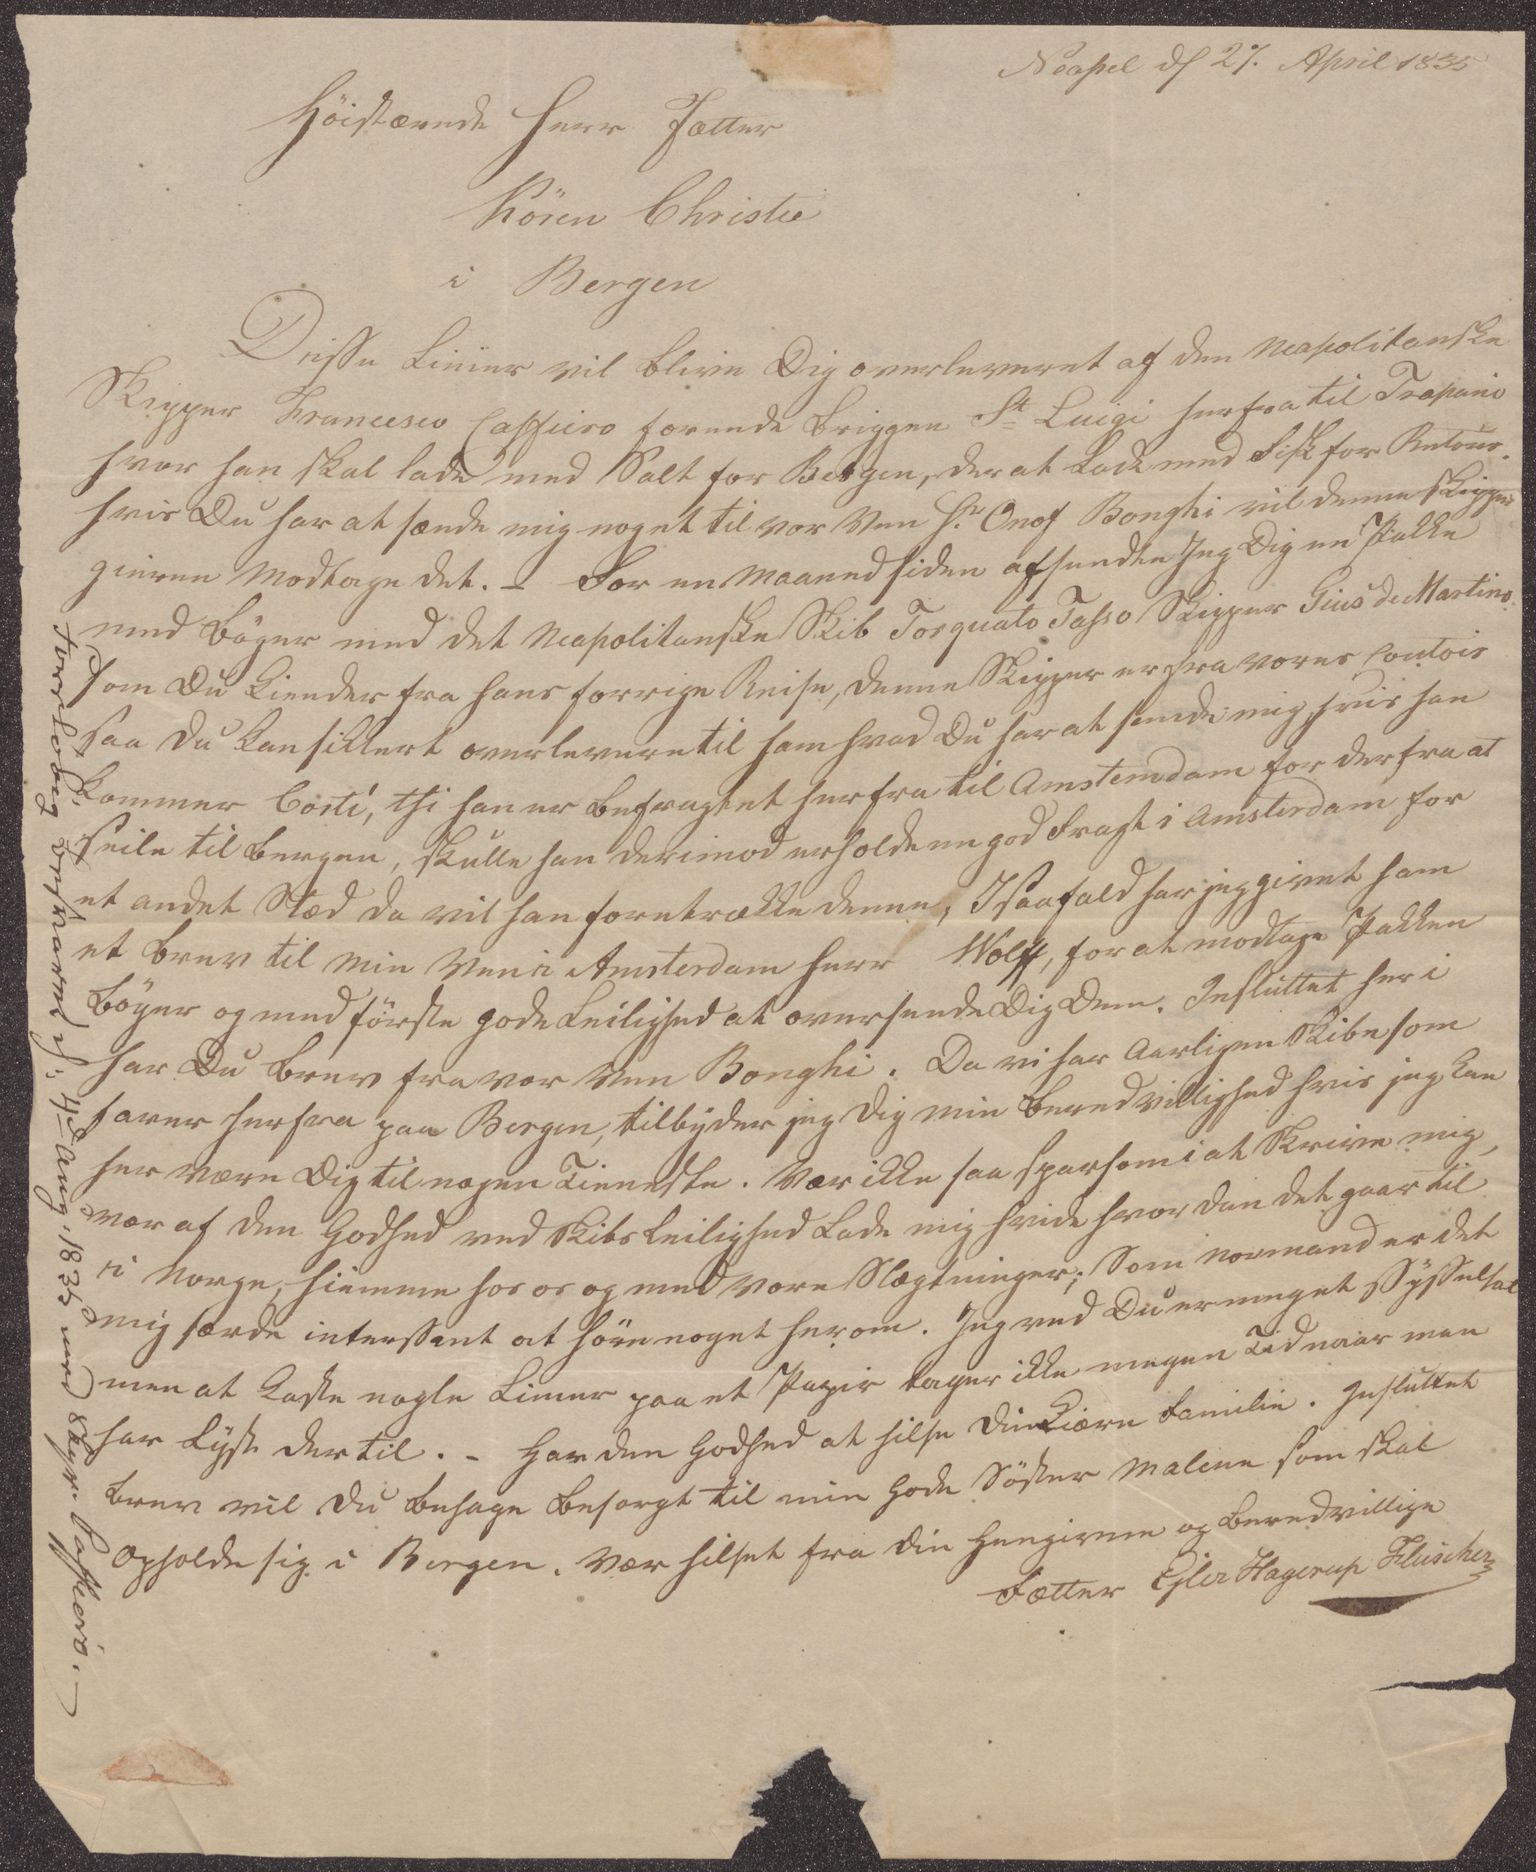 Neapel d 27. April 1835
Höistærede Herr Fætter
Kören Christie
i Bergen
Disse Linier vil blive Dig overleveret af den Neapolitanske
Skipper Francesco Caffiero förende Briggen St Luigi herfra til Trapani
hvor han skal lade med Salt for Bergen, der at lade med Fisk for Retour.
hvis Du har at sænde mig noget til vor Ven Hr Onof Bonghi vil denne Skipper
gierne modtage det. – For en Maaned siden afsendte Jeg Dig en Pakke
med Böger med det Neapolitanske Skib Torquato Tasso Skipper Gius de Martino
som Du kiender fra hans forrige Reise, denne Skipper er fra vores Contoir
saa Du kan sikkert overlevere til ham hvad Du har at sende mig hvis han
kommer Corti, thi han er befragtet herfra til Amsterdam for derfra at
seile til Bergen, skulle han derimod erholde en god Fragt i Amsterdam for
et andet Sted da vil han foretrække denne, I saafald har jeg givet ham
et brev til min Ven i Amsterdam Herr Wolff, for at modtage Pakken
Böger og med förste gode Leilighed at oversende Dig dem. Insluttet her i
har Du brev fra vor Ven Bonghi. Da vi har Aarligen Skibe som
farer herfra paa Bergen, tilbyder jeg Dig min Beredvillighed hvis jeg kan
her være Dig til nogen Tieneste. Vær ikke saa sparsom i at Skrive mig,
vær af den Godhed ved Skibsleilighed lade mig hvide hvordan det gaar til
i Norge, hiemme hos os og med vore Slægtninger; Som Normand er det
mig særde interssant at höre noget herom. Jeg ved Du er meget sysselsat
men at kaste nogle Linier paa et Papir tager ikke megen Tid naar man
har Lyst dertil. – Har den Godhed at hilse din Kiære Familie. Insluttet
brev vil Du behage besorgt til min Gode Söster Malene som skal
opholde sig i Bergen. Vær hilset fra din Hengivne og Beredvillige
Fætter Eiler Hagerup Fleischer
Foreløbig besvaret d: 4de Aug. 1835 med Skpr. Caffiero.